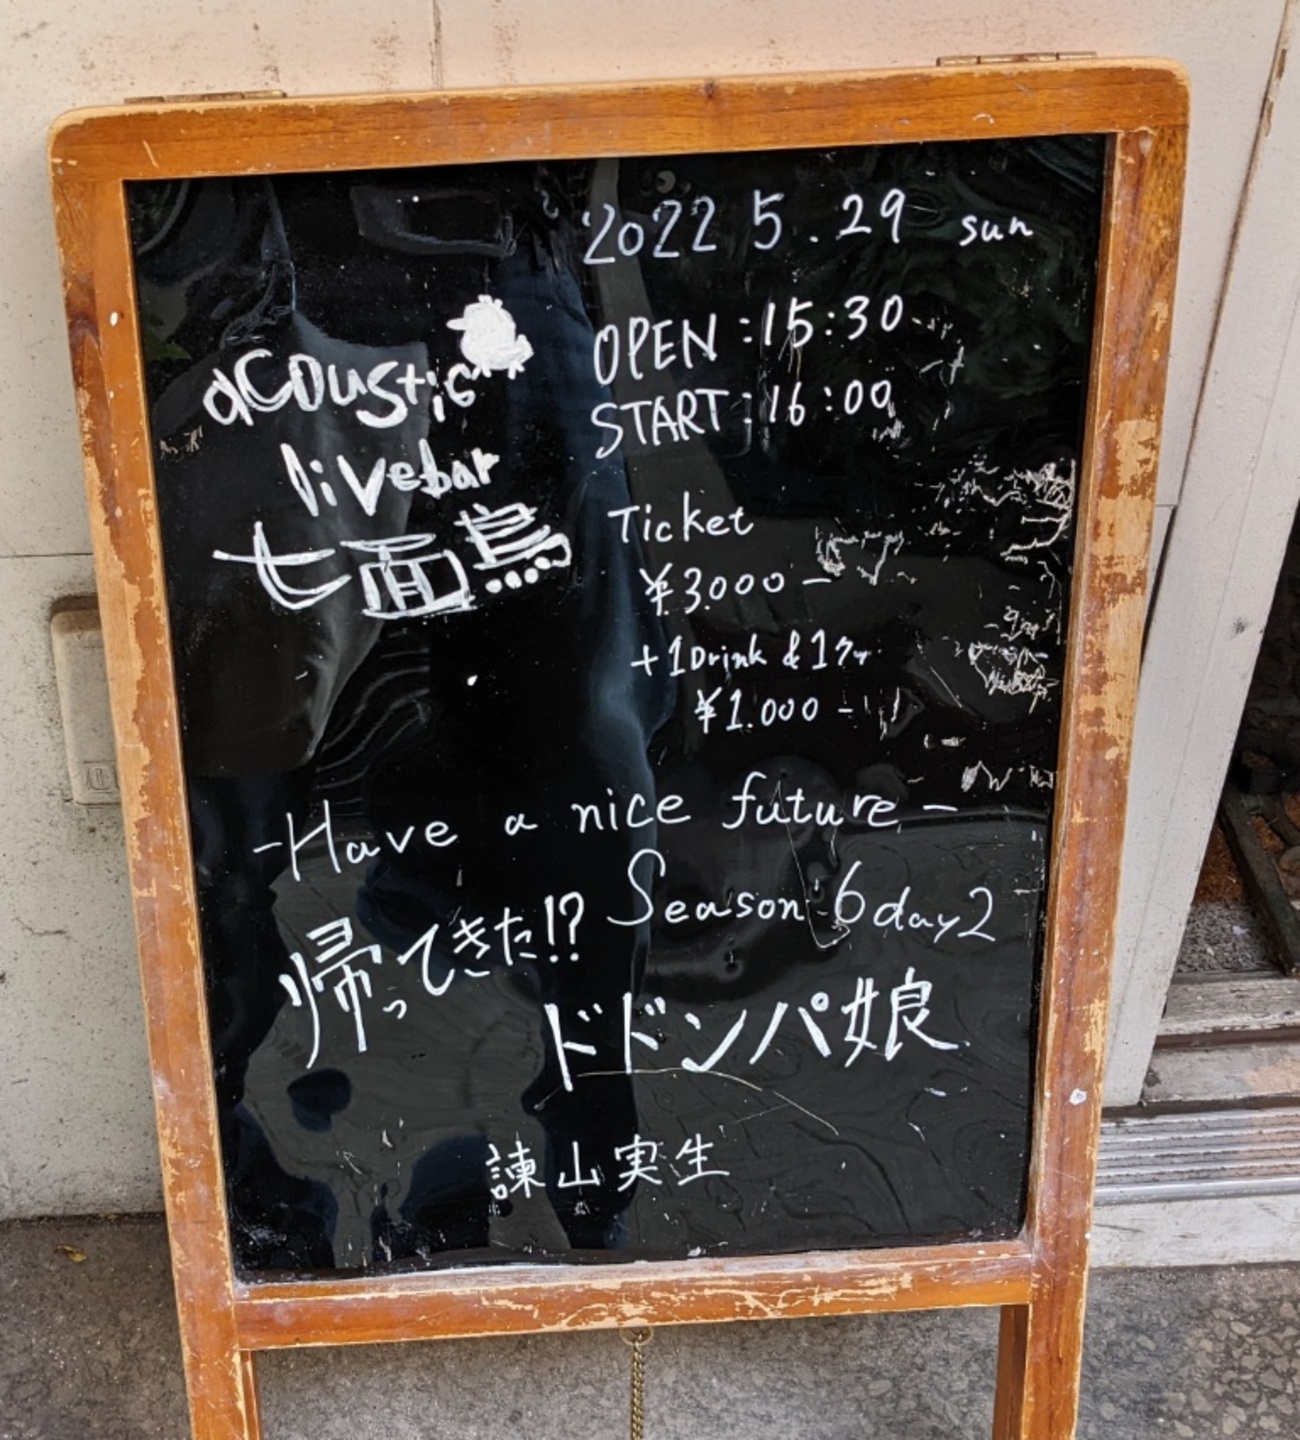 acoustic
livebar
七面鳥
2022 5.29 sun
OPEN:15:30
START:16:00
Ticket
¥3.000-
+1Drink & 1フー
¥1.000-
-Have a nice future-
Season 6 day2
帰ってきた!?
ドドンパ娘
諫山実生